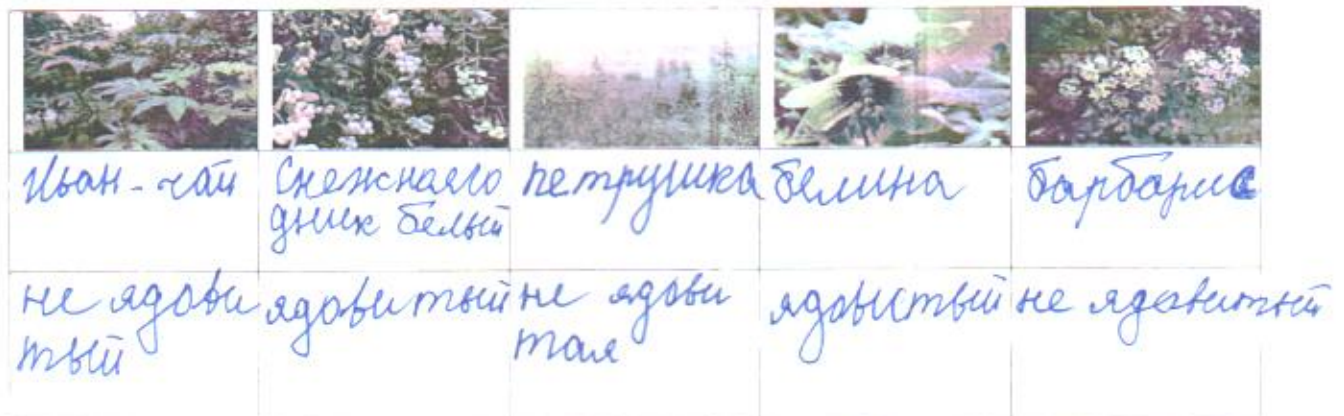 Иван-чай
Снежнаяго
дник белый
петрушка
белина
барбарис
не ядови
тый
ядовитый
не ядови
тая
ядовитый
не ядовитый